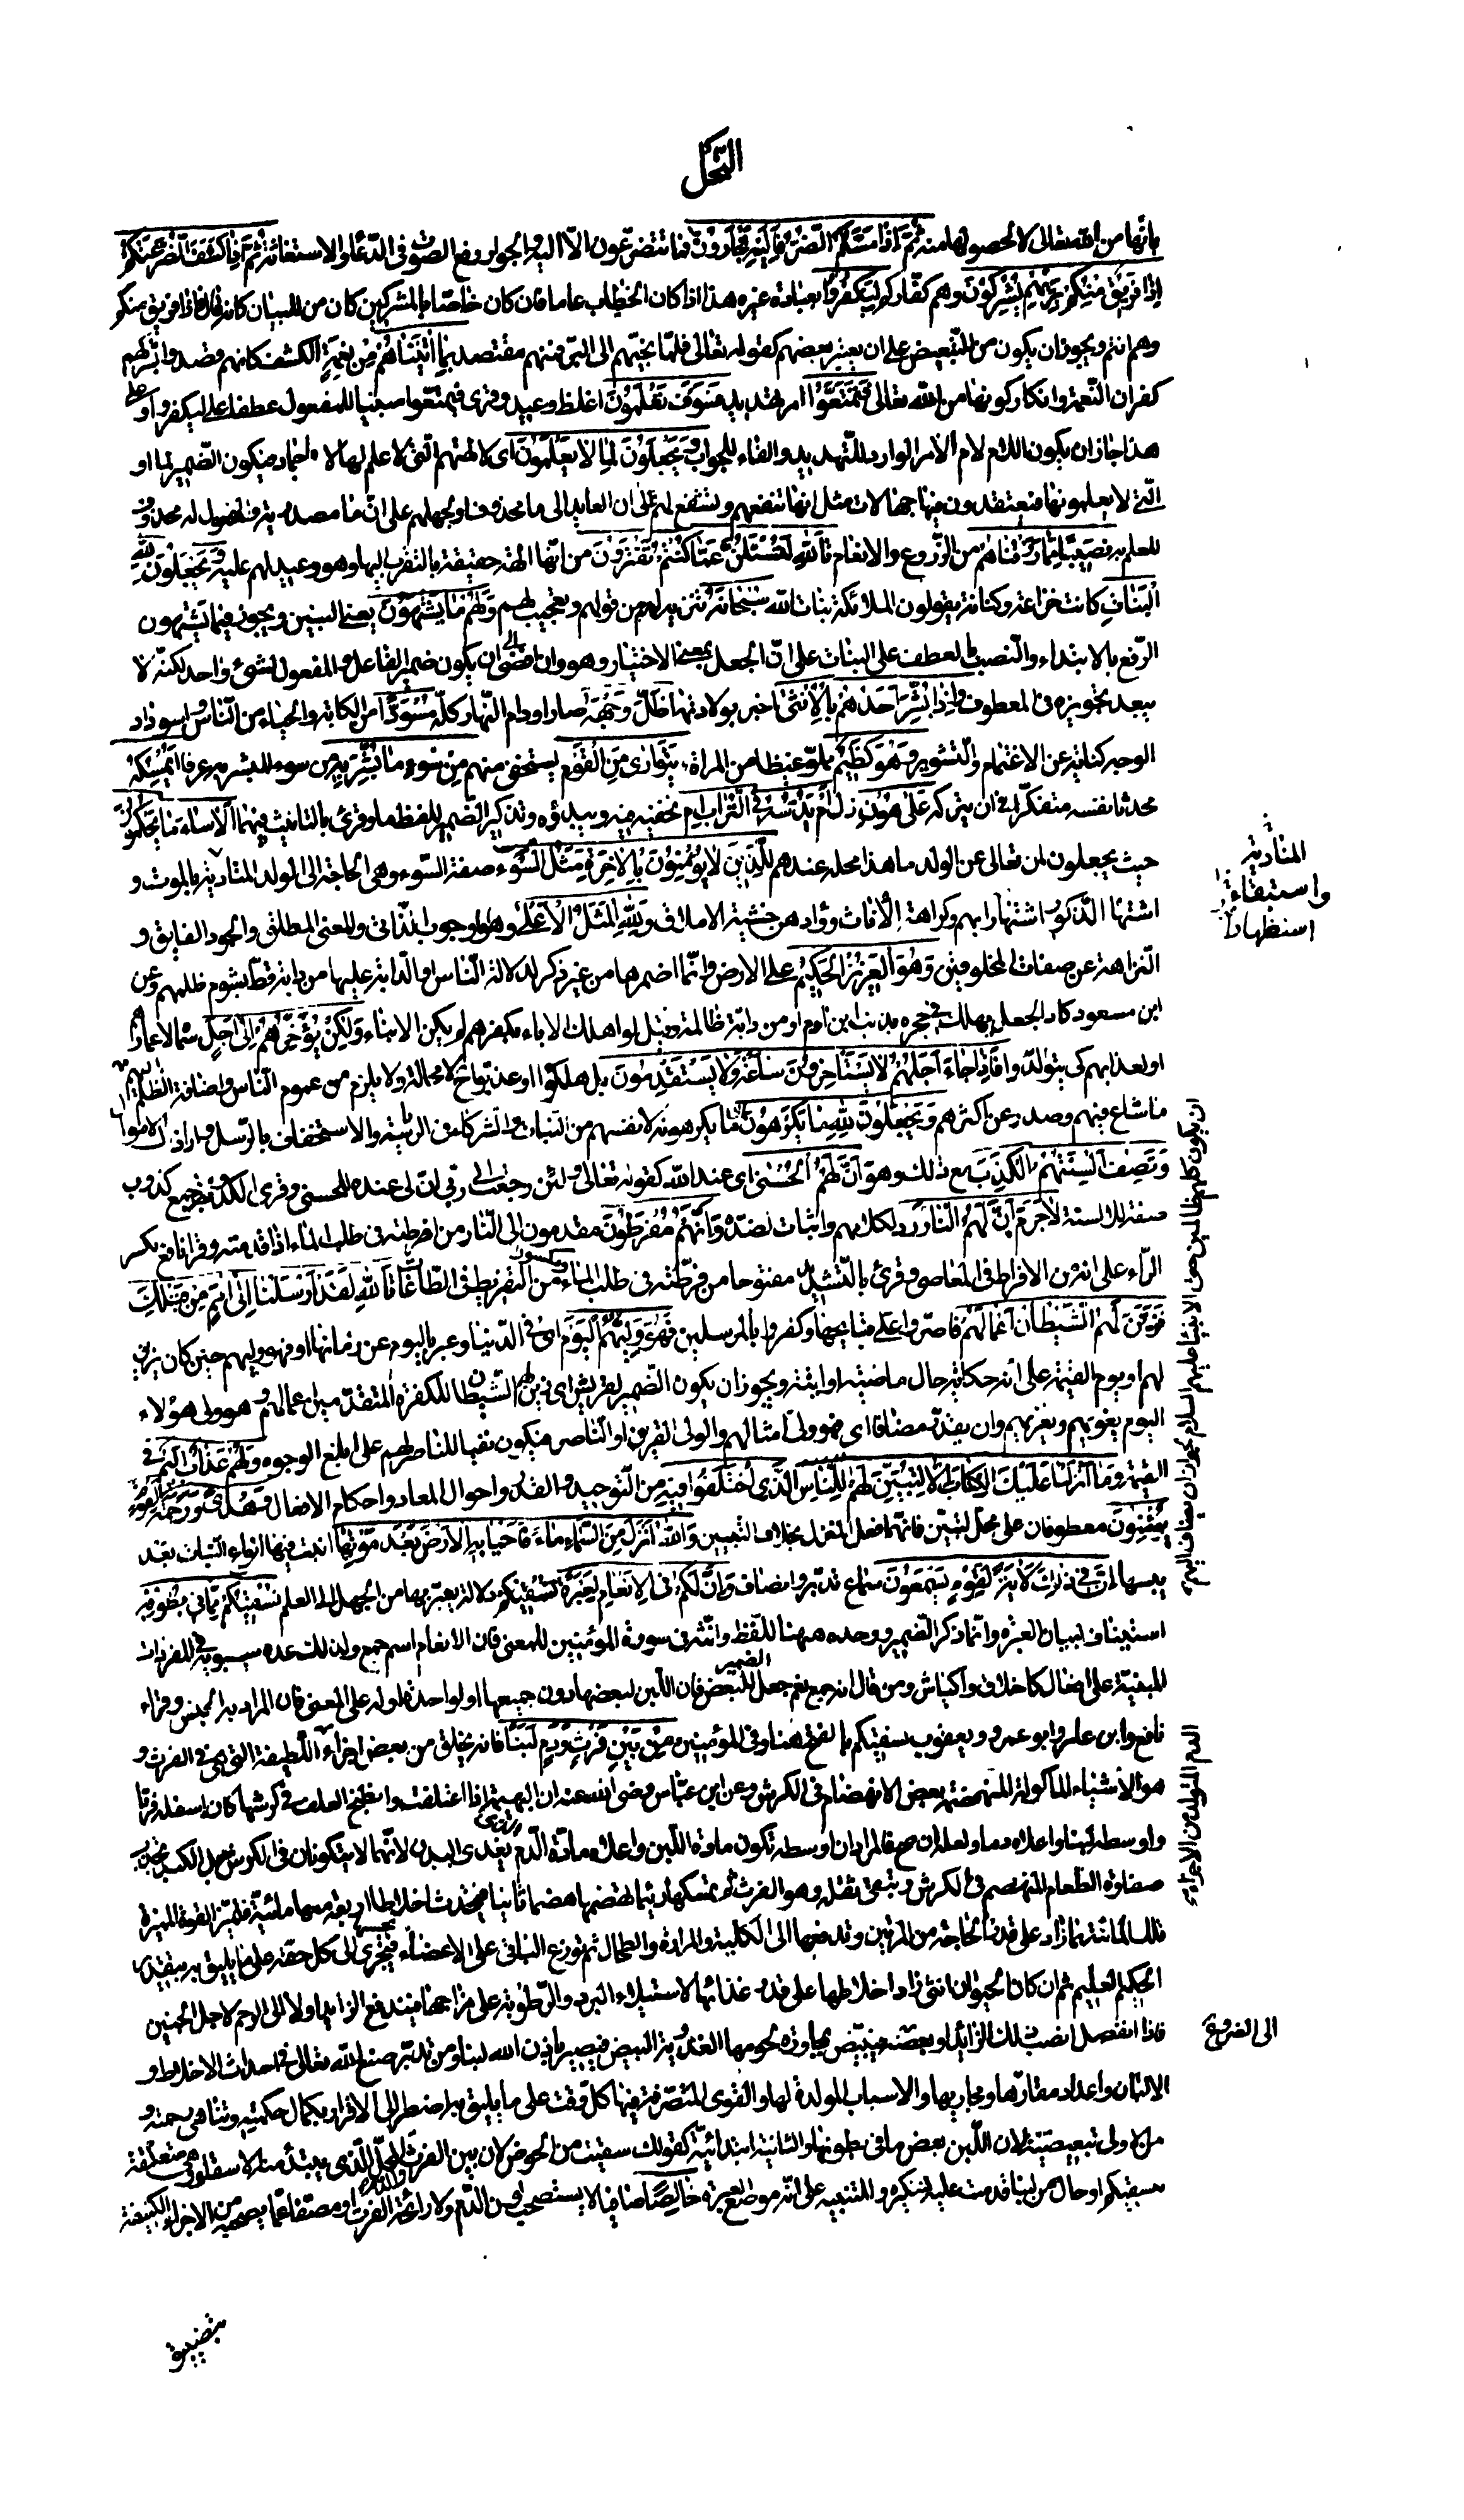 النحل
بانها من الله تعالى لا لحصولها منه ثُمَّ اِذَا مَسَّكُمُ الضُّرُّ فَاِلَيْهِ تَجْأَرُونَ فما تتضرعون الا اليه والجوار رفع الصوت فى الدعاء والاستغاثة ثُمَّ اِذَا كَشَفَ الضُّرَّ عَنْكُمْ
اِذَا فَرِيقٌ مِنْكُمْ بِرَبِّهِمْ يُشْرِكُونَ وهم كفاركم لِيَكْفُرُوا بعبادة غيره هذا اذا كان الخطاب عاما فان كان خاصا بالمشركين كان من للبيان كانه قال فاذا فريق منكم
وهم انتم ويجوز ان يكون من للتبعيض على ان يعتبر بعضهم كقوله تعالى فلما نجيهم الى البر فمنهم مقتصد بِمَا اٰتَيْنَاهُمْ مِنْ نعمة الكشف كانهم قصدوا بشركهم
كفران النعمة وانكار كونها من الله تعالى فَتَمَتَّعُوا امر تهديد فَسَوْفَ تَعْلَمُونَ اغلظ وعيد وقرى فيمتعوا مبنيا للمفعول عطفا على ليكفروا وعلى
هذا جاز ان يكون اللام لام الامر الوارد للتهديد والفاء للجواب وَيَجْعَلُونَ لِمَا لَا يَعْلَمُونَ اى لالهتهم التى لا علم لها لانها جماد فيكون الضمير لما او
التى لا يعلمونها فيعتقدون فيها جهالات مثل انها تنفعهم وتشفع لهم على ان العايد الى ما محذوف او لجهلهم على ان ما مصدرية والمجعول له محذوف
للعلم به نَصِيبًا مِمَّا رَزَقْنَاهُمْ من الزروع والانعام تَاللّٰهِ لَتُسْئَلُنَّ عَمَّا كُنْتُمْ تَفْتَرُونَ من انها الهة حقيقة بالتقرب اليها وهو وعيد لهم عليه وَيَجْعَلُونَ لِلّٰهِ
الْبَنَاتِ كانت خزاعة وكنانة يقولون الملائكة بنات الله سُبْحَانَهُ تنزيه له من قولهم وتعجيب لهم وَلَهُمْ مَا يَشْتَهُونَ يعنى البنين ويجوز فيما يشتهون
الرفع بالابتداء والنصب بالعطف على البنات على ان الجعل بمعنى الاختيار وهو وان افضى الى ان يكون ضمير الفاعل والمفعول لشئ واحد لكنه لا
يبعد تجويزه فى المعطوف وَاِذَا بُشِّرَ اَحَدُهُمْ بِالْاُنْثٰى اخبر بولادتها ظَلَّ وَجْهُهُ صار او دام النهار كله مُسْوَدًّا من الكابة والحياء من الناس واسوداد
الوجه كناية عن الاغتمام والتشوير وَهُوَ كَظِيمٌ مملو غيظا من المراة يَتَوَارٰى مِنَ الْقَوْمِ يستخفى منهم مِنْ سُوءِ مَا بُشِّرَ بِهِ من سوء المبشر به عرفا اَيُمْسِكُهُ
محدثا نفسه متفكرا فى ان يتركه عَلٰى هُونٍ ذل اَمْ يَدُسُّهُ فِى التُّرَابِ ام يخفيه فيه ويئده وتذكير الضمير للفظ ما وقرئ بالتانيث فيهما اَلَا سَاءَ مَا يَحْكُمُونَ
حيث يجعلون لمن تعالى عن الولد ما هذا محله عندهم لِلَّذِينَ لَا يُؤْمِنُونَ بِالْاٰخِرَةِ مَثَلُ السَّوْءِ صفة السوء وهى الحاجة الى الولد المنادية بالموت و
المنادية
واستبقاء
استظهارا
اشتهاء الذكور استظهارا بهم وكراهة الاناث ووأدهن خشية الاملاق وَلِلّٰهِ الْمَثَلُ الْاَعْلٰى وهو الوجوب الذاتى والغنى المطلق والجود الفايق و
النزاهة عن صفات المخلوقين وَهُوَ الْعَزِيزُ الْحَكِيمُ على الارض وانما اضمرها من غير ذكر لدلالة الناس والدابة عليها من دابة قط بشوم ظلمهم وعن
ابن مسعود كاد الجعل يهلك فى جحره بذنب ابن ادم او من دابة ظالمة وقيل لو اهلك الاباء بكفرهم لم يكن الابناء وَلٰكِنْ يُؤَخِّرُهُمْ اِلٰى اَجَلٍ سماه لاعمارهم
او لعذابهم كى يتوالدوا فَاِذَا جَاءَ اَجَلُهُمْ لَا يَسْتَأْخِرُونَ سَاعَةً وَلَا يَسْتَقْدِمُونَ بل هلكوا او عذبوا ح لا محالة ولا يلزم من عموم الناس واضافة الظلم اليهم
ان يكون كلهم ظالمين حتى الانبياء عليهم السلام لجواز ان يضاف اليهم
ما شاع فيهم وصدر عن اكثرهم وَيَجْعَلُونَ لِلّٰهِ مَا يَكْرَهُونَ اى ما يكرهونه لانفسهم من البنات والشركاء فى الرياسة والاستخفاف بالرسل واراذل الاموال
وَتَصِفُ اَلْسِنَتُهُمُ الْكَذِبَ مع ذلك وهو اَنَّ لَهُمُ الْحُسْنٰى اى عند الله كقوله تعالى ولئن رجعت الى ربى ان لى عنده للحسنى وقرى الكذب جمع كذوب
صفة للالسنة لَا جَرَمَ اَنَّ لَهُمُ النَّارَ رد لكلامهم واثبات لضده وَاَنَّهُمْ مُفْرَطُونَ مقدمون الى النار من افرطته فى طلب الماء اذا قدمته وقرا نافع بكسر
الراء على انه من الافراط فى المعاصى وقرئ بالتشديد مفتوحا من فرطته فى طلب الماء ومكسورا من التفريط فى الطاعات تَاللّٰهِ لَقَدْ اَرْسَلْنَا اِلٰى اُمَمٍ مِنْ قَبْلِكَ
فَزَيَّنَ لَهُمُ الشَّيْطَانُ اَعْمَالَهُمْ فاصروا على قبايحها وكفروا بالمرسلين فَهُوَ وَلِيُّهُمُ الْيَوْمَ اى فى الدنيا وعبر باليوم عن زمانها او فهو وليهم حين كان يزين
لهم او يوم القيمة على انه حكاية حال ماضية او اتية ويجوز ان يكون الضمير لقريش اى زين لهم الشيطان للكفرة المتقدمين اعمالهم وهو ولى هؤلاء
اليوم يغويهم ويغريهم وان يقدر مضاف اى فهو ولى امثالهم والولى القرين او الناصر فيكون نفيا للناصر لهم على ابلغ الوجوه وَلَهُمْ عَذَابٌ اَلِيمٌ فى
القيمة وَمَا اَنْزَلْنَا عَلَيْكَ الْكِتَابَ اِلَّا لِتُبَيِّنَ لَهُمُ للناس الَّذِى اخْتَلَفُوا فِيهِ من التوحيد والقدر واحوال المعاد واحكام الافعال وَهُدًى وَرَحْمَةً لِقَوْمٍ
يُؤْمِنُونَ معطوفان على محل لتبين فانهما فعلا المنزل بخلاف التبيين وَاللّٰهُ اَنْزَلَ مِنَ السَّمَاءِ مَاءً فَاَحْيَا بِهِ الْاَرْضَ بَعْدَ مَوْتِهَا انبت فيها انواع النبات بعد
يبسها اِنَّ فِى ذٰلِكَ لَاٰيَةً لِقَوْمٍ يَسْمَعُونَ سماع تدبر وانصاف وَاِنَّ لَكُمْ فِى الْاَنْعَامِ لَعِبْرَةً دلالة يعبر بها من الجهل الى العلم نُسْقِيكُمْ مِمَّا فِى بُطُونِهِ
استيناف لبيان العبرة وانما ذكر الضمير ووحده ههنا للفظ وانثه فى سورة المؤمنين للمعنى فان الانعام اسم جمع ولذلك عده سيبويه فى المفردات
المبنية على افعال كاخلاق واكياش ومن قال انه جمع نعم جعل الضمير للبعض فان اللبن لبعضها دون جميعها او لواحده اوله على المعنى فان المراد به الجنس وقراء
نافع وابن عامر وابو عمرو ويعقوب نسقيكم بالفتح هنا وفى المؤمنين مِنْ بَيْنِ فَرْثٍ وَدَمٍ لَبَنًا فانه يخلق من بعض اجزاء اللطيفة التى هى فى الفرث و
الدم المتولد من الاجزاء
هو الاشياء الماكولة المنهضمة بعض الانهضام فى الكرش وعن ابن عباس رضى الله عنه ان البهيمة اذا اعتلفت وانطبخ العلف فى كرشها كان اسفله فرثا
واوسطه لبنا واعلاه دما ولعله ان صح فالمراد ان اوسطه تكون مادة اللبن واعلاه مادة الدم الذى يغذى البدن لانهما لا يتكونان فى الكرش بل الكبد يجذب
صفاوة الطعام المنهضم فى الكرش ويبقى ثفله وهو الفرث ثم يمسكها ريثما يهضمها هضما ثانيا فيحدث اخلاطا اربعة معها مائية فتميز القوة المميزة
تلك المائية بما زاد على قدر الحاجة من المرتين وتدفعها الى الكلية والمرارة والطحال ثم توزع الباقى على الاعضاء بحسبها فيجرى الى كل حقه على ما يليق به بتقدير
الحكيم العليم ثم ان كان الحيوان انثى زاد اخلاطها على قدر غذائها لاستيلاء البرد والرطوبة على مزاجها فيندفع الزايد اولا الى الرحم لاجل الجنين
فاذا انفصل انصب ذلك الزائد او بعضه الى الضروع فيبيض بمجاورة لحومها الغددية البيض فيصير باذن الله لبنا ومن تدبر صنع الله تعالى فى احداث الاخلاط و
الى الضروع
الالبان واعداد مقارها ومجاريها والاسباب المولدة لها والقوى المتصرفة فيها كل وقت على ما يليق به اضطر الى الاقرار بكمال حكمته وتناهى رحمته و
من الاولى تبعيضية لان اللبن بعض ما فى بطونها والثانية ابتدائية كقولك سقيت من الحوض لان بين الفرث والدم المحل الذى يبتدأ منه الاسقاء وهى متعلقة
بنسقيكم او حال من لبنا قدمت عليه لتنكيره وللتنبيه على انه موضع العبرة خَالِصًا صافيا لا يستصحب لون الدم ولا رائحة الفرث او مصفى عما يصحبه من الاجزاء الكثيفة
بتضييق